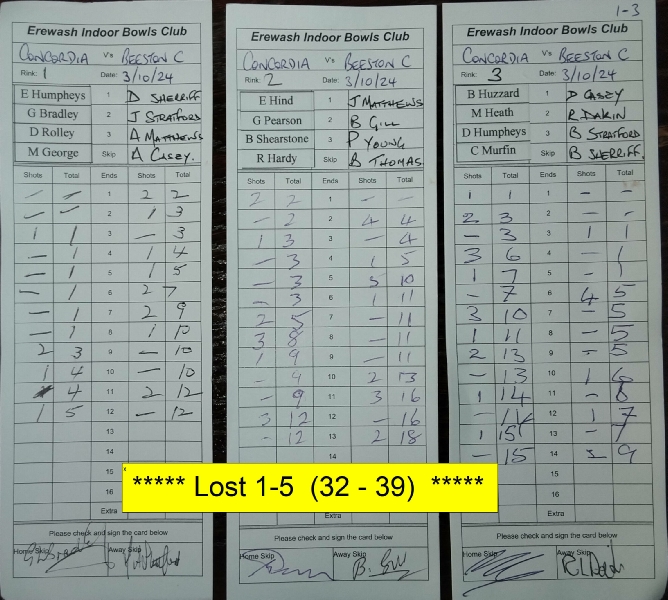 1-3
Erewash Indoor Bowls Club
CONCORDIA V's BEESTON C
Rink: 1 Date: 3/10/24
E Humpheys 1 D SHERRIFF
G Bradley 2 J STRATFORD
D Rolley 3 A MATTHEWS
M George Skip A CASEY.
Shots Total Ends Shots Total
- - 1 2 2
- - 2 1 3
1 1 3 - 3
- 1 4 1 4
- 1 5 1 5
- 1 6 2 7
- 1 7 2 9
- 1 8 1 10
2 3 9 - 10
1 4 10 - 10
4 11 2 12
1 5 12 - 12
13
14
16
Extra
Please check and sign the card below
Home Skip Away Skip
Erewash Indoor Bowls Club
CONCORDIA V's BEESTON C
Rink: 2 Date: 3/10/24
E Hind 1 J MATTHEWS
G Pearson 2 B GILL
B Shearstone 3 P YOUNG
R Hardy Skip B THOMAS
Shots Total Ends Shots Total
2 2 1 - -
- 2 2 4 4
1 3 3 - 4
- 3 4 1 5
- 3 5 5 10
- 3 6 1 11
2 5 7 - 11
3 8 8 - 11
1 9 9 - 11
- 9 10 2 13
- 9 11 3 16
3 12 12 - 16
- 12 13 2 18
14
Extra
Please check and sign the card below
Home Skip Away Skip
B. Gill
Erewash Indoor Bowls Club
CONCORDIA V's BEESTON C
Rink: 3 Date: 3/10/24
B Huzzard 1 D CASEY
M Heath 2 R DAKIN
D Humpheys 3 B STRATFORD
C Murfin Skip B SHERRIFF.
Shots Total Ends Shots Total
1 1 1 - -
2 3 2 - -
- 3 3 1 1
3 6 4 - 1
1 7 5 - 1
- 7 6 4 5
3 10 7 - 5
1 11 8 - 5
2 13 9 - 5
- 13 10 1 6
1 14 11 - 6
- 14 12 1 7
1 15 13 - 7
- 15 14 2 9
15
16
Extra
Please check and sign the card below
Home Skip Away Skip
***** Lost 1-5 (32 - 39) *****